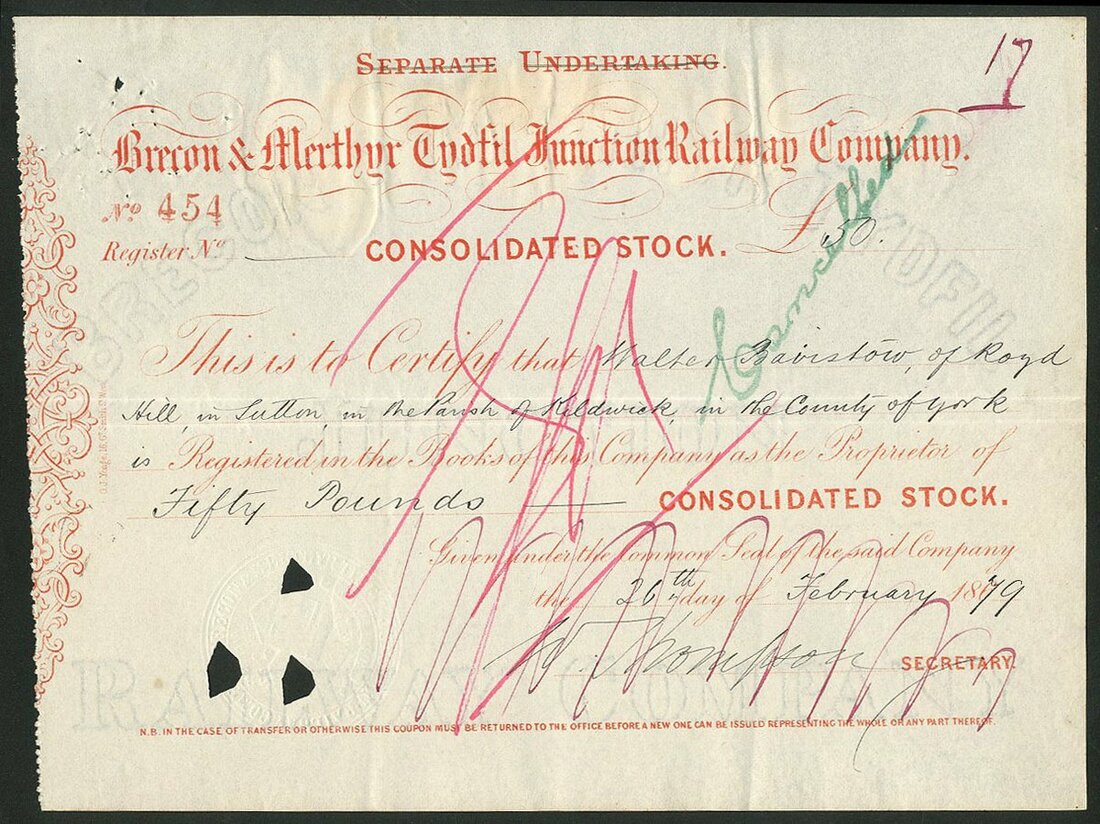 17
SEPARATE UNDERTAKING.
Brecon & Merthyr Tydfil Junction Railway Company.
No 454
£50.
Register No
CONSOLIDATED STOCK.
Cancelled
This is to Certify that Walter Bairstow, of Royd
Hill, in Sutton, in the Parish of Kildwick, in the County of York
is Registered in the Books of this Company as the Proprietor of
Fifty Pounds CONSOLIDATED STOCK.
Given under the Common Seal of the said Company
the 26th day of February 1879
W. Thompson SECRETARY.
RAILWAY COMPANY
N.B. IN THE CASE OF TRANSFER OR OTHERWISE THIS COUPON MUST BE RETURNED TO THE OFFICE BEFORE A NEW ONE CAN BE ISSUED REPRESENTING THE WHOLE OR ANY PART THEREOF.